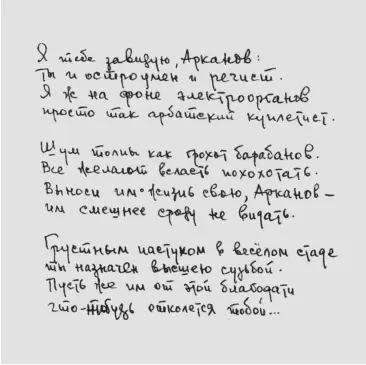 Я тебе завидую, Арканов:
ты и остроумен и речист.
Я ж на фоне электроорганов
просто так арбатский куплетист.
Шум толпы как грохот барабанов.
Все желают всласть похохотать.
Выноси им жизнь свою, Арканов –
им смешнее сроду не видать.
Грустным пастухом в весёлом стаде
ты назначен высшею судьбой.
Пусть же им от этой благодати
что-нибудь отколется тобой...